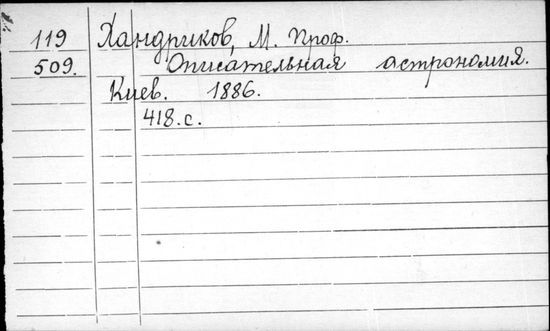 119 Хандриков, М. Проф.
509. Описательная астрономия.
Киев. 1886.
418.с.